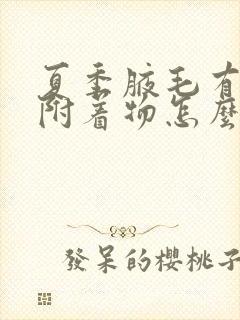 夏季腋毛有
附着物怎麼
發呆的櫻桃子